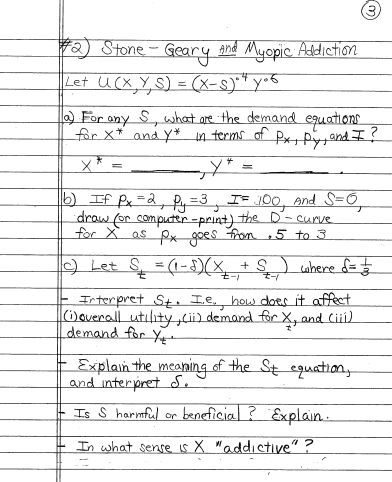 ③
#2) Stone-Geary and Myopic Addiction
Let U(X,Y,S) = (X-S)^.4 Y^.6
a) For any S, what are the demand equations
for X* and Y* in terms of Px, Py, and I?
X* = ________, Y* = ________.
b) If Px=2, Py=3, I=100, and S=0,
draw (or computer-print) the D-curve
for X as Px goes from .5 to 3
c) Let S_t = (1-δ)(X_t-1 + S_t-1) where δ=1/3
- Interpret S_t. I.e., how does it affect
(i) overall utility, (ii) demand for X_t, and (iii)
demand for Y_t.
- Explain the meaning of the S_t equation,
and interpret δ.
- Is S harmful or beneficial? Explain.
- In what sense is X "addictive"?